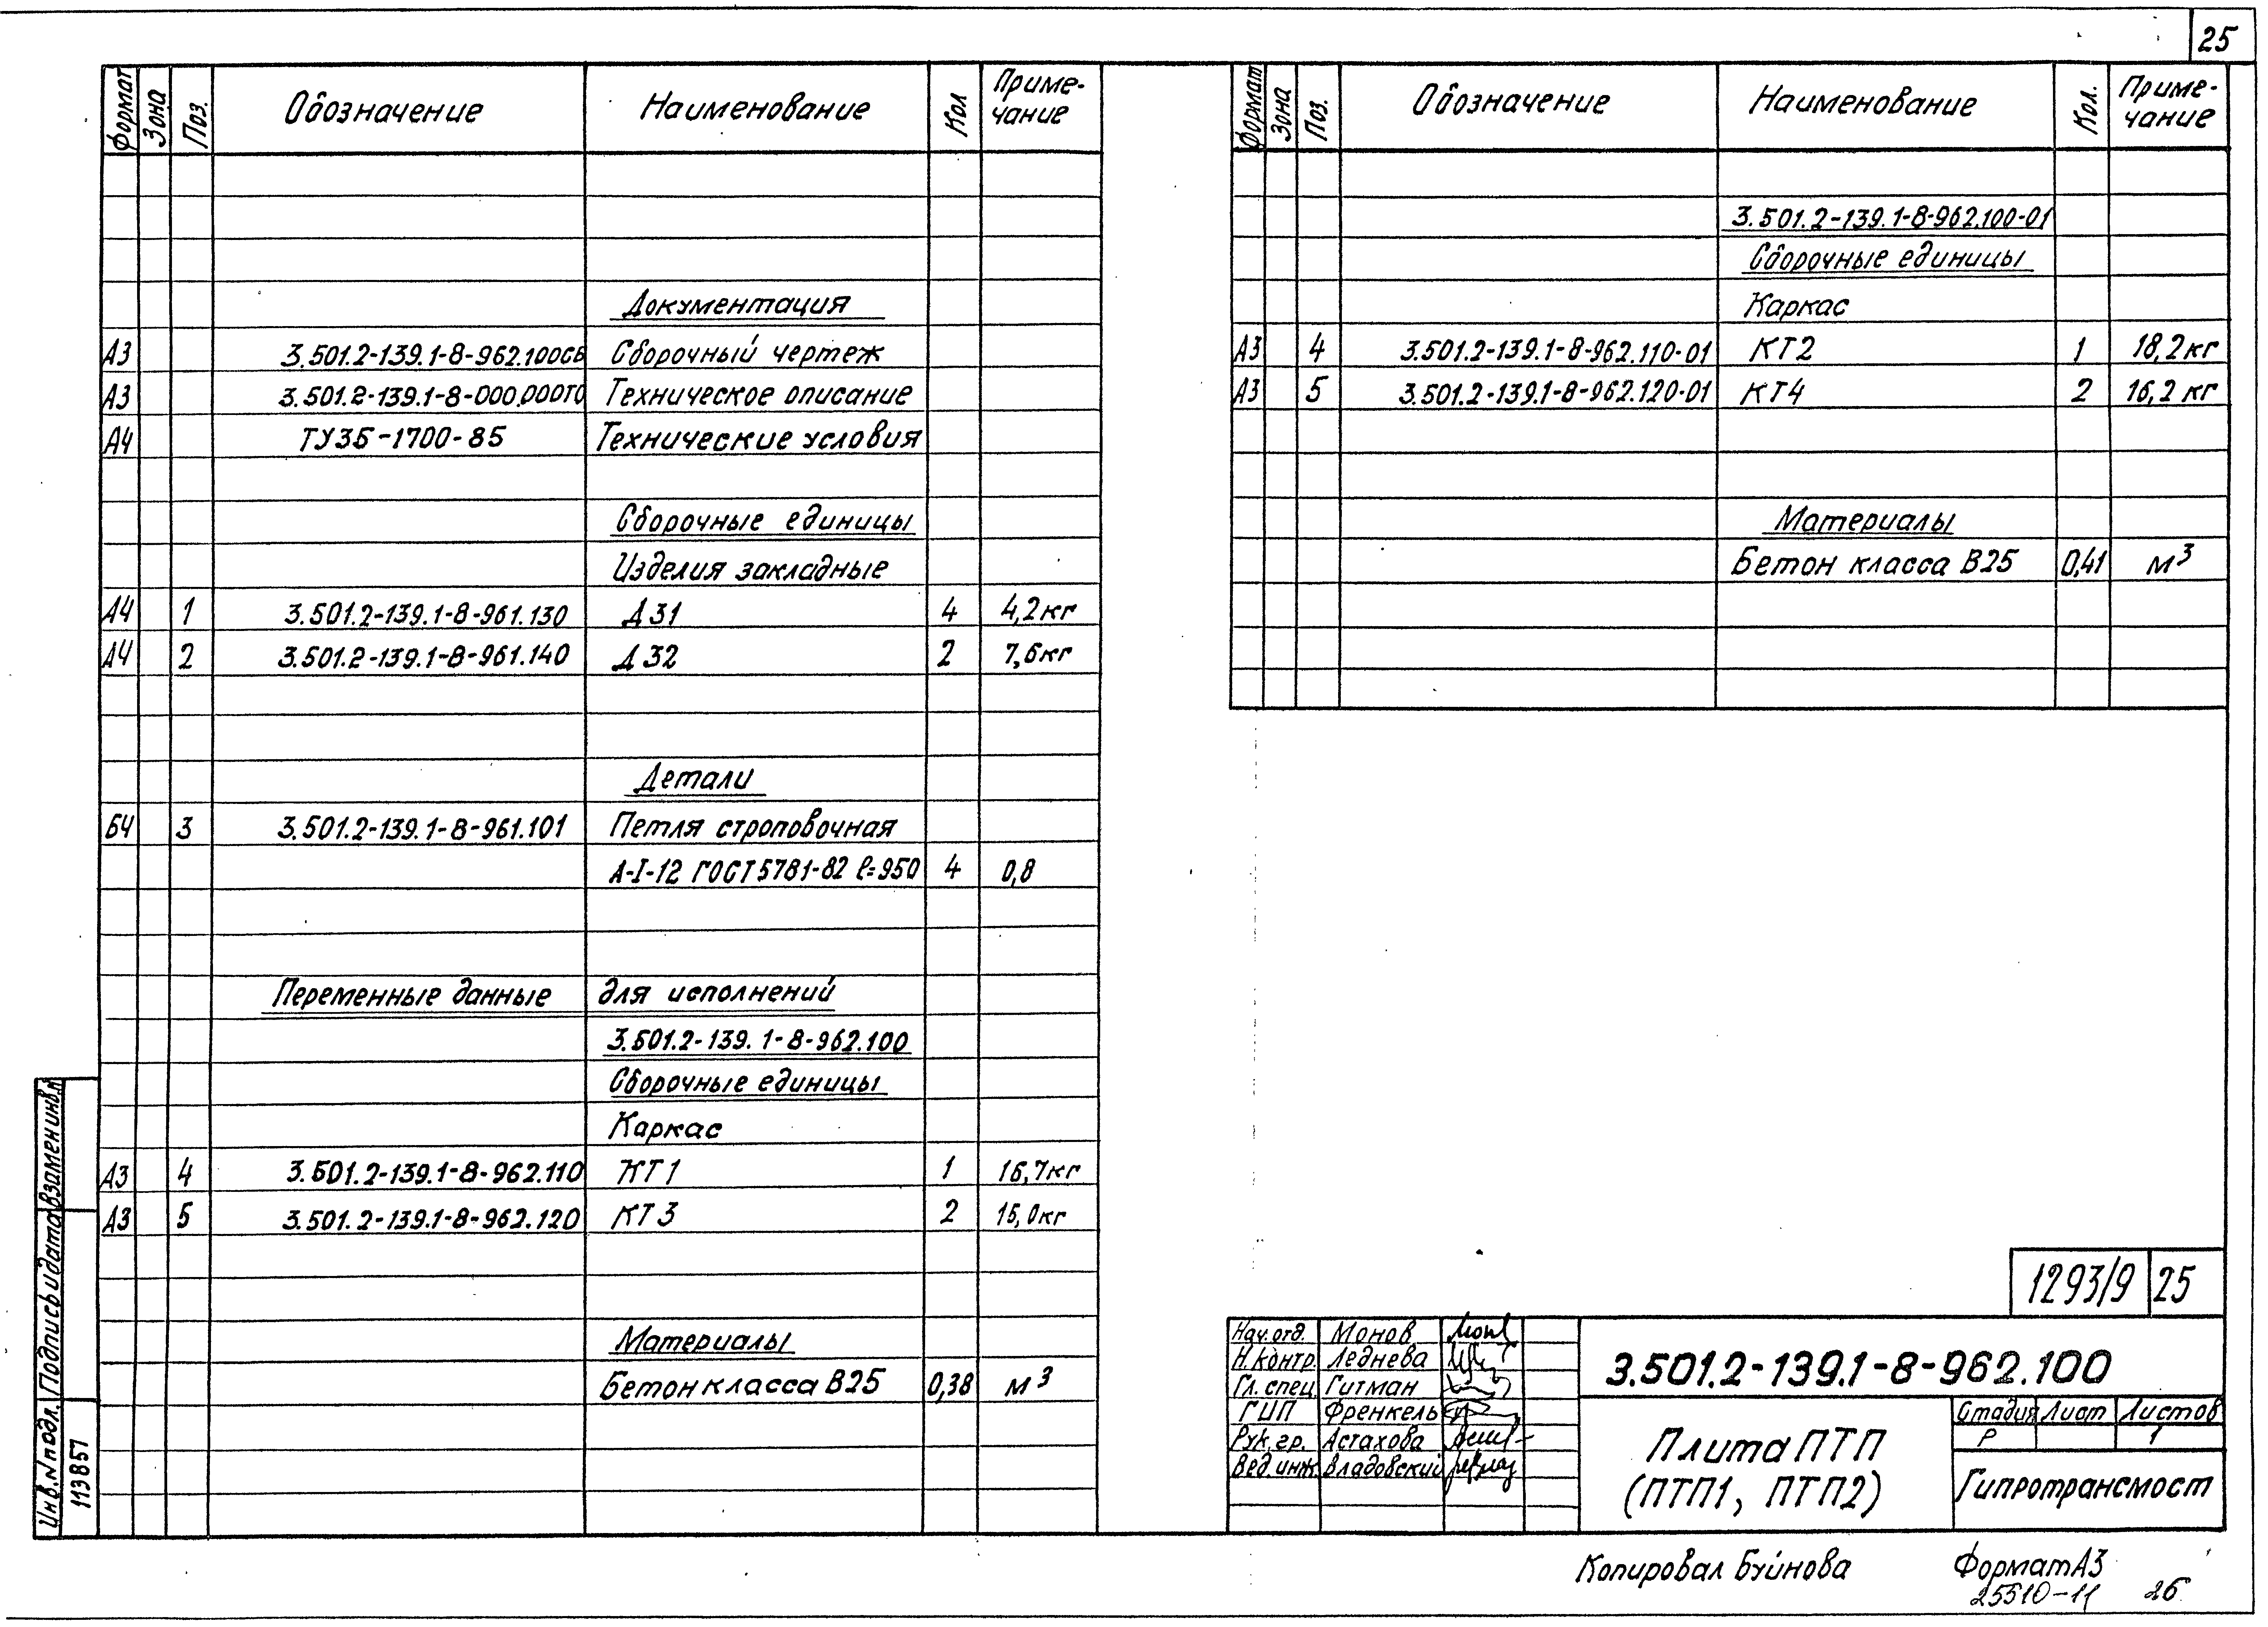 25
Формат Зона Поз. Обозначение Наименование Кол Примечание
Документация
А3 3.501.2-139.1-8-962.100СБ Сборочный чертеж
А3 3.501.2-139.1-8-000.000ТО Техническое описание
А4 ТУ35-1700-85 Технические условия
Сборочные единицы
Изделия закладные
А4 1 3.501.2-139.1-8-961.130 Д31 4 4,2кг
А4 2 3.501.2-139.1-8-961.140 Д32 2 7,6кг
Детали
БЧ 3 3.501.2-139.1-8-961.101 Петля строповочная
А-I-12 ГОСТ5781-82 ℓ=950 4 0,8
Переменные данные для исполнений
3.501.2-139.1-8-962.100
Сборочные единицы
Каркас
А3 4 3.501.2-139.1-8-962.110 КТ1 1 16,7кг
А3 5 3.501.2-139.1-8-962.120 КТ3 2 15,0кг
Материалы
Бетон класса В25 0,38 м³
Формат Зона Поз. Обозначение Наименование Кол. Примечание
3.501.2-139.1-8-962.100-01
Сборочные единицы
Каркас
А3 4 3.501.2-139.1-8-962.110-01 КТ2 1 18,2кг
А3 5 3.501.2-139.1-8-962.120-01 КТ4 2 16,2кг
Материалы
Бетон класса В25 0,41 м³
1293/9 25
Нач.отд. Монов
Н.контр. Леднева
Гл.спец. Гитман
ГИП Френкель
Рук.гр. Астахова
Вед.инж. Владовский
3.501.2-139.1-8-962.100
Плита ПТП
(ПТП1, ПТП2)
Стадия Лист Листов
Р 1
Гипротрансмост
Инв.№подл. Подпись и дата Взамен инв.№
113857
Копировал Буйнова Формат А3
25510-11 26